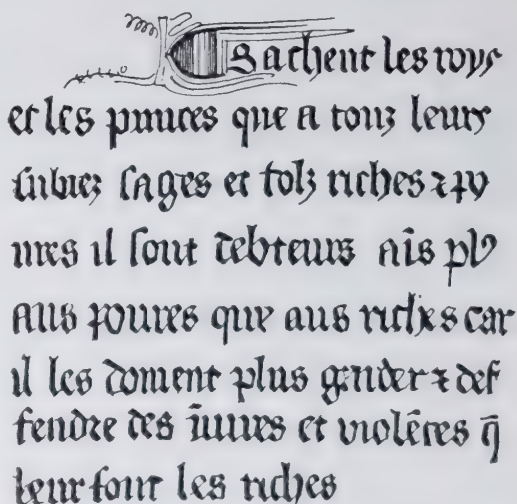 E Sachent les roys
et les princes que a touz leurs
subiez sages et folz riches ⁊ po
ures il sont debteurs ais plꝰ
aus poures que aus riches car
il les doiuent plus garder ⁊ def
fendre des iniures et violēces q̄
leur font les riches